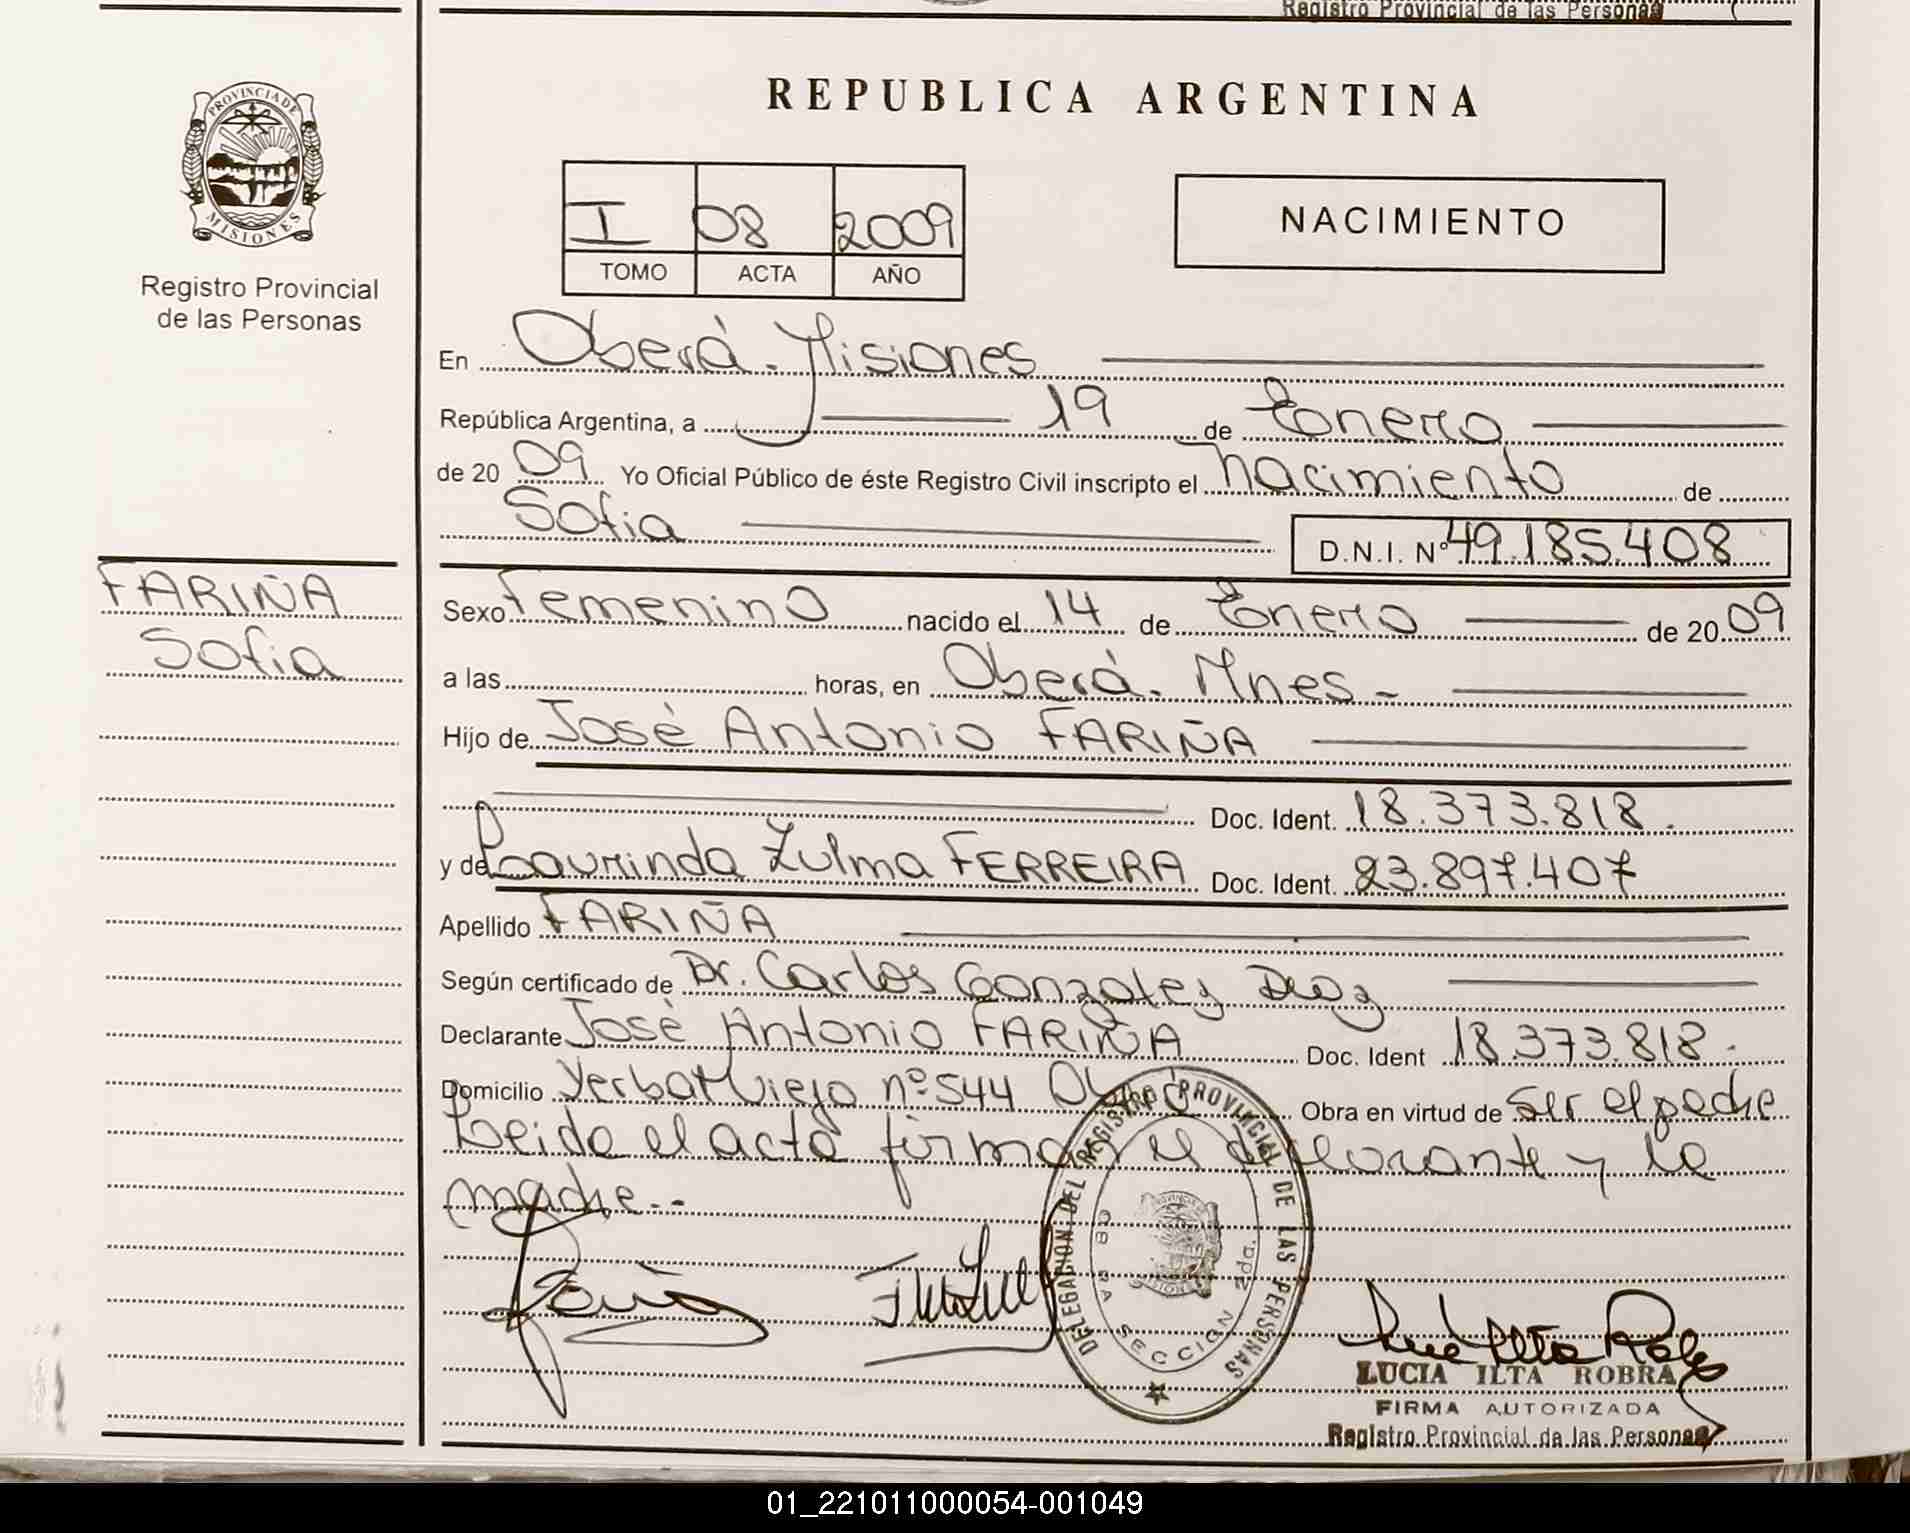 Registro Provincial de las Personas
PROVINCIA DE
MISIONES
Registro Provincial
de las Personas
REPUBLICA ARGENTINA
I 08 2009
TOMO ACTA AÑO
NACIMIENTO
En Oberá - Misiones
República Argentina, a 19 de Enero
de 20 09 Yo Oficial Público de éste Registro Civil inscripto el nacimiento de
Sofia D.N.I. Nº 49.185.408
FARIÑA
Sofia
Sexo Femenino nacido el 14 de Enero de 20 09
a las horas, en Oberá. Mnes -
Hijo de José Antonio FARIÑA
Doc. Ident. 18.373.818.
y de Laurinda Zulma FERREIRA Doc. Ident. 23.897.407
Apellido FARIÑA
Según certificado de Dr. Carlos Gonzalez Diaz
Declarante José Antonio FARIÑA Doc. Ident 18.373.818.
Domicilio Yerbal Viejo nº 544 Obra en virtud de ser el padre
Leida el acta firman el declarante y la
madre..
DELEGACION DEL REGISTRO PROVINCIAL DE LAS PERSONAS
OBERA SECCION 2da.
LUCIA ILTA ROBRA
FIRMA AUTORIZADA
Registro Provincial de las Personas
01_221011000054-001049